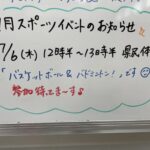 月スポーツイベントのお知らせ
7/6(木) 12時半〜13時半 県民体
「バスケットボール&バドミントン!」です
参加待ってま〜す♪